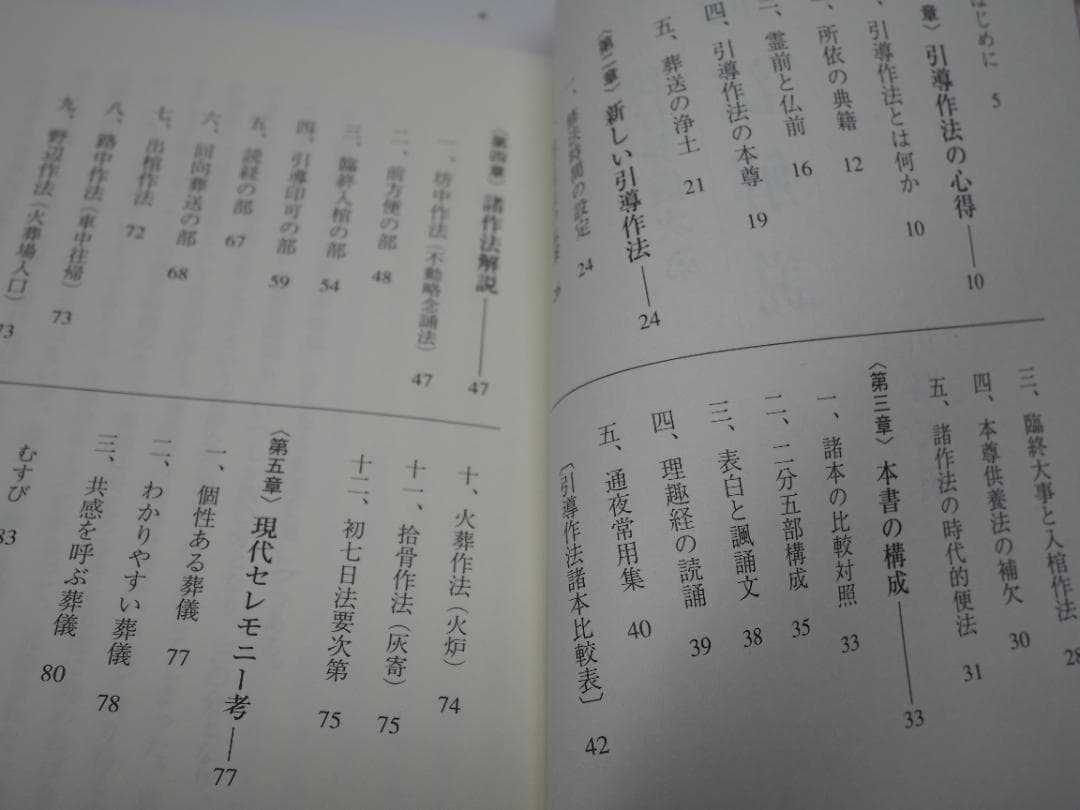 はじめに 5
章〉引導作法の心得――10
、引導作法とは何か 10
、所依の典籍 12
、霊前と仏前 16
四、引導作法の本尊 19
五、葬送の浄土 21
〈第二章〉新しい引導作法――24
一、修法時間の設定 24
三、臨終大事と入棺作法 28
四、本尊供養法の補欠 30
五、諸作法の時代的便法 31
〈第三章〉本書の構成――33
一、諸本の比較対照 33
二、二分五部構成 35
三、表白と諷誦文 38
四、理趣経の読誦 39
五、通夜常用集 40
〔引導作法諸本比較表〕 42
〈第四章〉諸作法解説――47
一、坊中作法（不動略念誦法） 47
二、前方便の部 48
三、臨終入棺の部 54
四、引導印可の部 59
五、読経の部 67
六、回向葬送の部 68
七、出棺作法 72
八、路中作法（車中往帰） 73
九、野辺作法（火葬場入口） 73
十、火葬作法（火炉） 74
十一、拾骨作法（灰寄） 75
十二、初七日法要次第 75
〈第五章〉現代セレモニー考――77
一、個性ある葬儀 77
二、わかりやすい葬儀 78
三、共感を呼ぶ葬儀 80
むすび 83